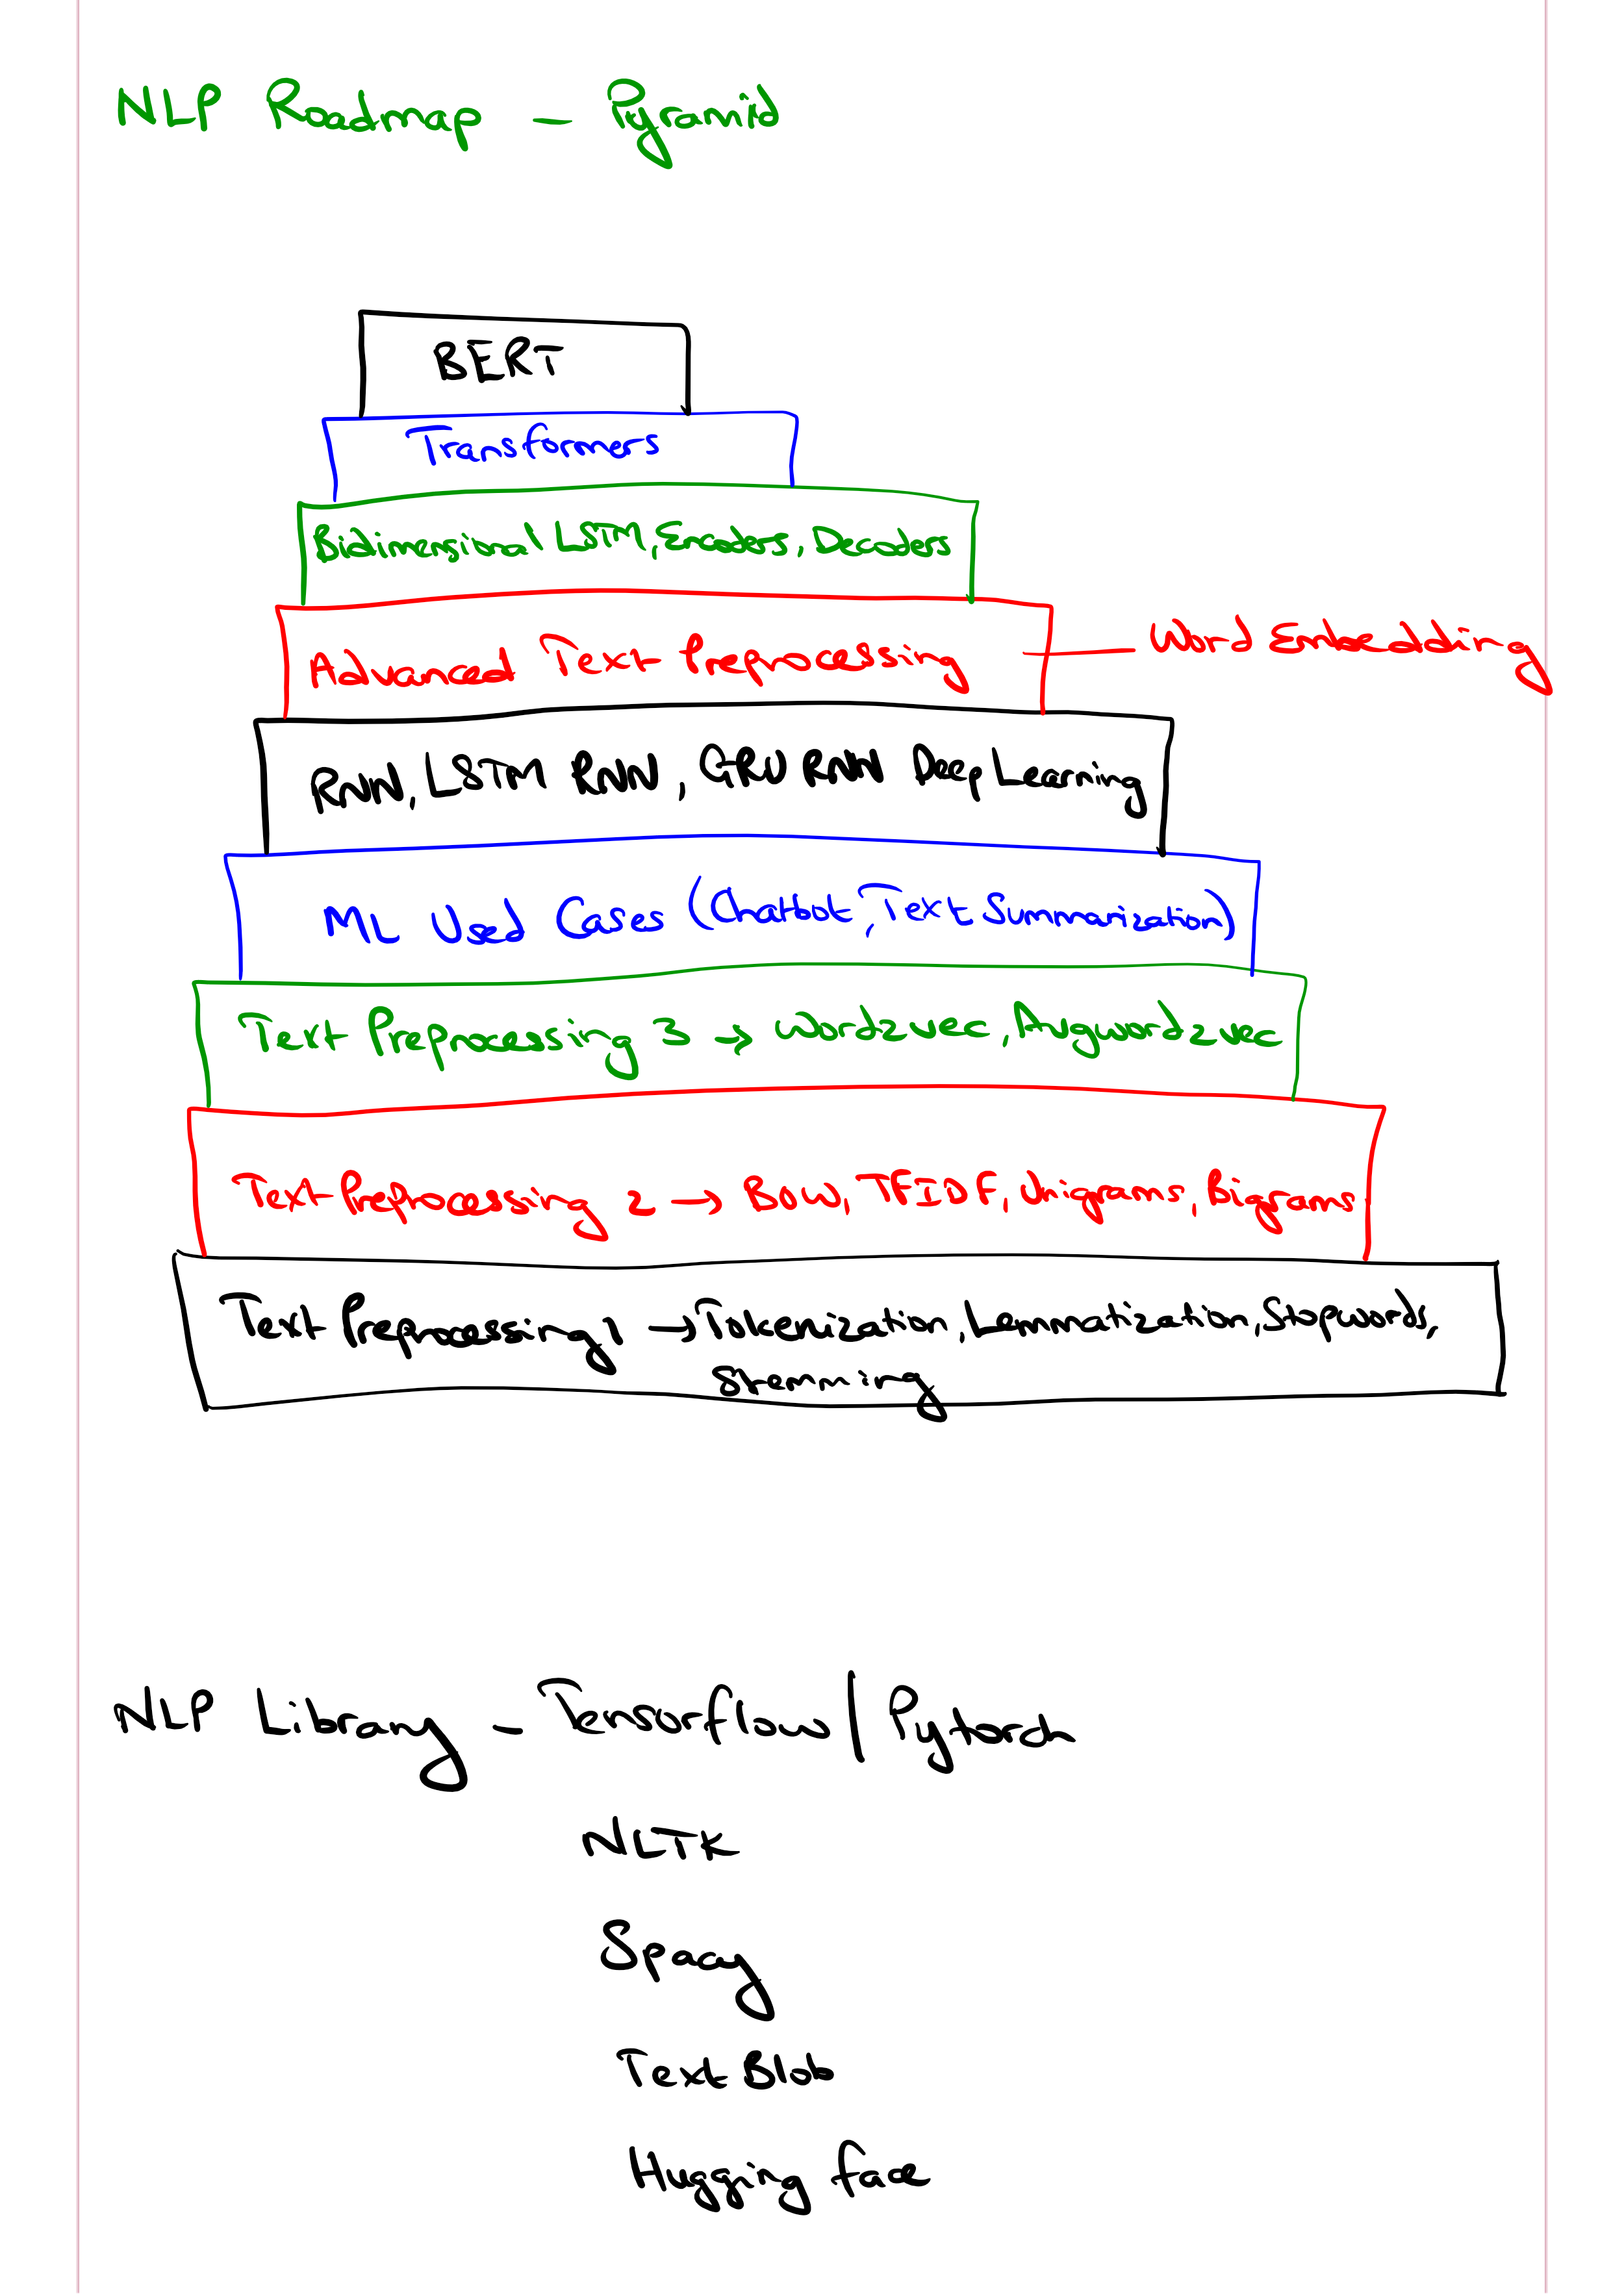 NLP Roadmap - Pyramid
BERT
Transformers
Bidimensional LSTM, Encoders, Decoders
Advanced Text Preprocessing — Word Embedding
RNN, LSTM RNN, GRU RNN Deep Learning
ML Used Cases (Chatbot, Text Summarization)
Text Preprocessing 3 → Word2vec, Avgword2vec
Text Preprocessing 2 → BOW, TFIDF, Unigrams, Bigrams
Text Preprocessing 1 → Tokenization, Lemmatization, Stopwords,
Stemming
NLP Library - Tensorflow / Pytorch
NLTK
Spacy
Text Blob
Hugging face